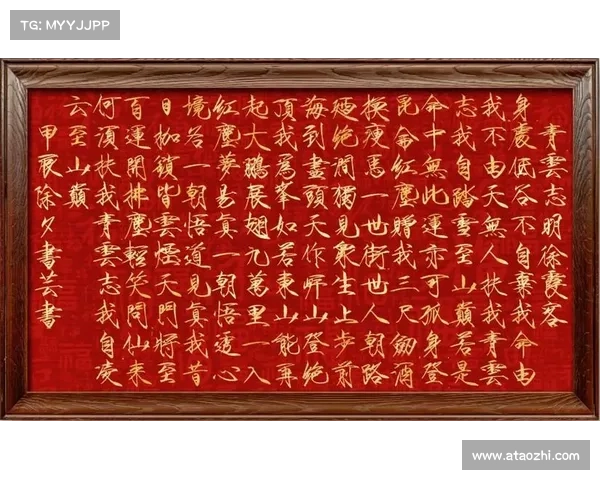 TG: MYYJJPP
青雲志明徐霞客
身處低谷不自棄我命由
我不由天無人扶我青雲
志我自踏雲至山巔若是
命中無此運亦可孤身登
昆侖紅塵贈我三尺劍酒
換瘦馬一世街世人朝路
絕間獨見衆生上步前
海到盡頭天作岸山登絕
頂我爲峯如若東山能再
起大鵬展翅九萬里一入
紅塵夢易真一朝悟透心
境名一朝悟道見真我昔
日枷鎖皆雲煙天門將至
百運開拂塵輕笑問仙來
何須扶我青雲志我自凌
云至山巔
甲辰除夕書芸書
www.ataozhi.com